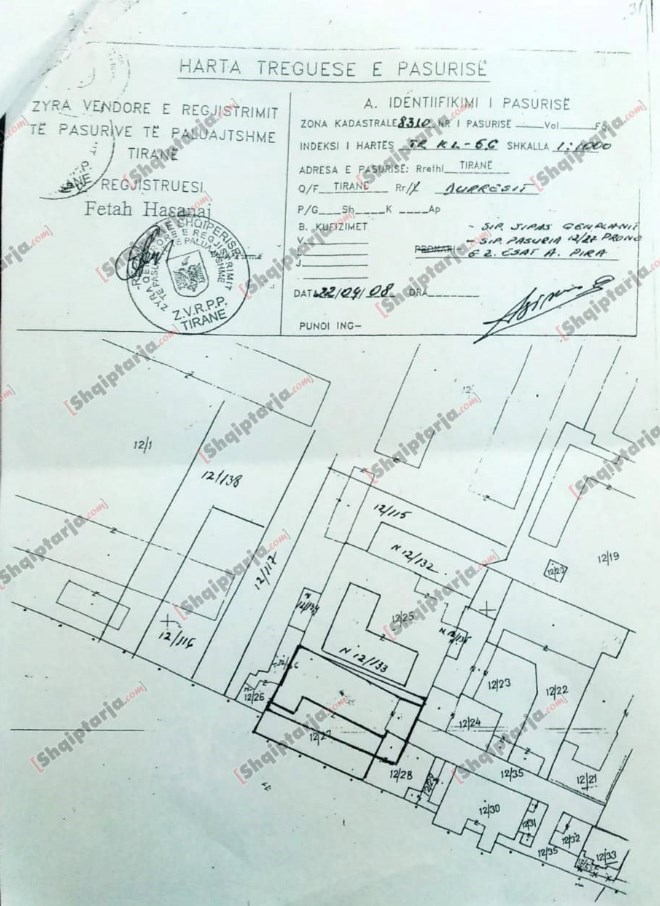 HARTA TREGUESE E PASURISË
ZYRA VENDORE E REGJISTRIMIT
TË PASURIVE TË PALUAJTSHME
TIRANË
REGJISTRUESI
Fetah Hasanaj
Z.V.R.P.P.
TIRANE
A. IDENTIIFIKIMI I PASURISË
ZONA KADASTRALE 8310 NR I PASURISË Vol
INDEKSI I HARTËS TR KL-5G SHKALLA 1:1000
ADRESA E PASURISË: Rrethi TIRANË
Q/F TIRANË Rr DURRËSIT
P/G Sh K Ap
B. KUFIZIMET
V
J
- SIP. SIPAS GENPLANIT
- SIP. PASURIA 12/27 PRONO
DATË 22/09/08 ORA
PUNOI ING-
12/1
12/138
12/117
12/116
12/115
N 12/132
12/19
12/25
N 12/133
12/26
12/27
12/28
12/24
12/23
12/22
12/21
12/35
12/30
12/31
12/32
12/33
12/35
[Shqiptarja.com]